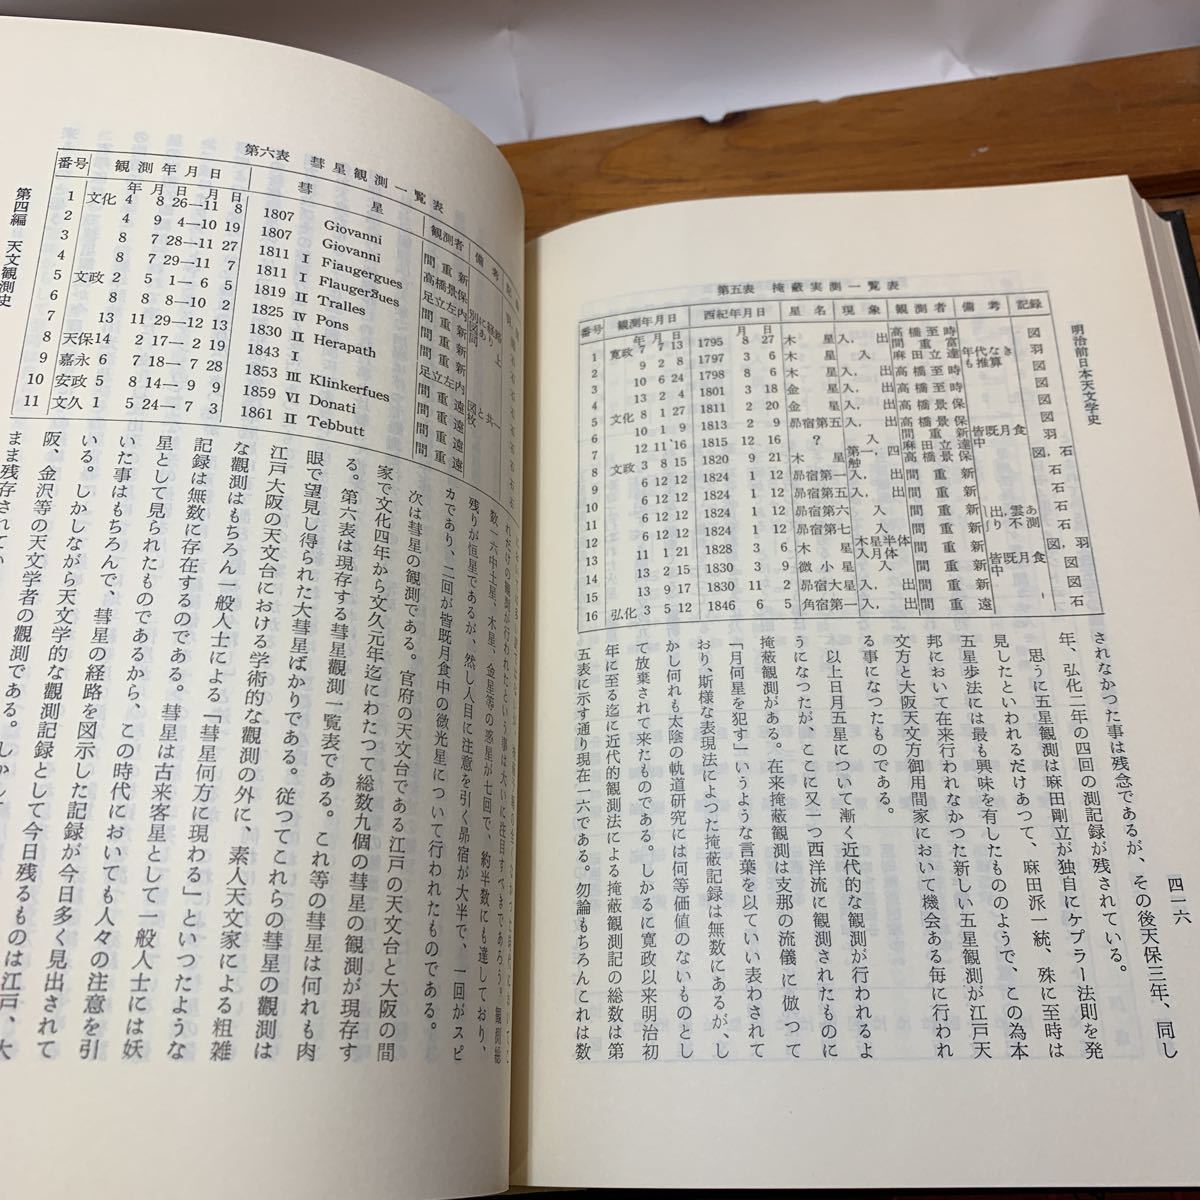 明治前日本天文学史
四一六
第五表　掩蔽実測一覧表
番号 観測年月日 西紀年月日 星名 現象 観測者 備考 記録
年月日 年月日
1 寛政 7 7 13 1795 8 27 木星 入，出 高橋至時 図
2 9 2 8 1797 3 6 木星 入 間重富 羽
3 10 6 24 1798 8 6 木星 入，出 図
4 13 1801 3 18 金星 入，出 高橋至時 図
5 文化 8 1 27 1811 2 20 金星 入，出 高橋景保 図
6 10 1 9 1813 2 9 昴宿第五 入，出 高橋景保 図
7 12 11 16 1815 12 16 ? 入 間重新 皆既月食中 羽
8 文政 3 8 15 1820 9 21 木星
9 6 12 12 1824 1 12 昴宿第一 入，出 間重新 石
10 6 12 12 1824 1 12 昴宿第五 入，出 間重新 石
11 6 12 12 1824 1 12 昴宿第六 入 間重新 石
12 6 12 12 1824 1 12 昴宿第七 入 間重新 石
13 11 1 21 1828 3 6 木星 間重新 図，羽
14 13 2 15 1830 3 9 微小星 入 間重新 皆既月食中 図
15 13 9 17 1830 11 2 昴宿大星 入，出 間重新 図
16 弘化 3 5 12 1846 6 5 角宿第一 入，出 間重遠 石
されなかつた事は残念であるが、その後天保三年、同じ
年、弘化二年の四回の測記録が残されている。
思うに五星観測は麻田剛立が独自にケプラー法則を発
見したといわれるだけあつて、麻田派一統、殊に至時は
五星歩法には最も興味を有したもののようで、この為本
邦において在来行われなかつた新しい五星観測が江戸天
文方と大阪天文方御用間家において機会ある毎に行われ
る事になつたものである。
以上日月五星について漸く近代的な観測が行われるよ
うになつたが、ここに又一つ西洋流に観測されたものに
掩蔽観測がある。在来掩蔽観測は支那の流儀に倣つて
「月何星を犯す」いうような言葉を以ていい表わされて
おり、斯様な表現法によつた掩蔽記録は無数にあるが、し
かし何れも太陰の軌道研究には何等価値のないものとし
て放棄されて来たものである。しかるに寛政以来明治初
年に至る迄に近代的観測法による掩蔽観測記の総数は第
五表に示す通り現在一六である。勿論もちろんこれは数
第四編　天文観測史
第六表　彗星観測一覧表
番号 観測年月日 彗星 観測者 備考
年月日 月日
1 文化 4 8 26—11 8 1807 Giovanni 間重新
2 4 9 4—10 19 1807 Giovanni 高橋景保
3 8 7 28—11 27 1811 I Flaugergues 足立左内
4 8 7 29—11 7 1811 I Flaugergues 間重新
5 文政 2 5 1—6 5 1819 II Tralles 間重新
6 8 8—10 2 1825 IV Pons 間重新
7 13 11 29—12 13 1830 II Herapath
8 天保 14 2 7—2 28 1843 I
9 嘉永 6 7 18—7 28 1853 III Klinkerfues
10 安政 5 8—9 1859 VI Donati 間重遠
11 文久 1 5 24—7 3 1861 II Tebbutt 間重遠
れだけの観測が行われたという事は大いに注目すべきであろう。観測総
数一六中土星、木星、金星等の惑星が七回で、約半数にも達しており、
残りが恒星であるが、然し人目に注意を引く昴宿が大半で、一回がスピ
カであり、二回が皆既月食中の微光星について行われたものである。
次は彗星の観測である。官府の天文台である江戸の天文台と大阪の間
家で文化四年から文久元年迄にわたつて総数九個の彗星の観測が現存す
る。第六表は現存する彗星観測一覧表である。これ等の彗星は何れも肉
眼で望見し得られた大彗星ばかりである。従つてこれらの彗星の観測は
江戸大阪の天文台における学術的な観測の外に、素人天文家による粗雑
な観測はもちろん一般人士による「彗星何方に現わる」といつたような
記録は無数に存在するのである。彗星は古来客星として一般人士には妖
星として見られたものであるから、この時代においても人々の注意を引
いた事はもちろんで、彗星の経路を図示した記録が今日多く見出されて
いる。しかしながら天文学的な観測記録として今日残るものは江戸、大
阪、金沢等の天文学者の観測である。しかして
まま残存されてい